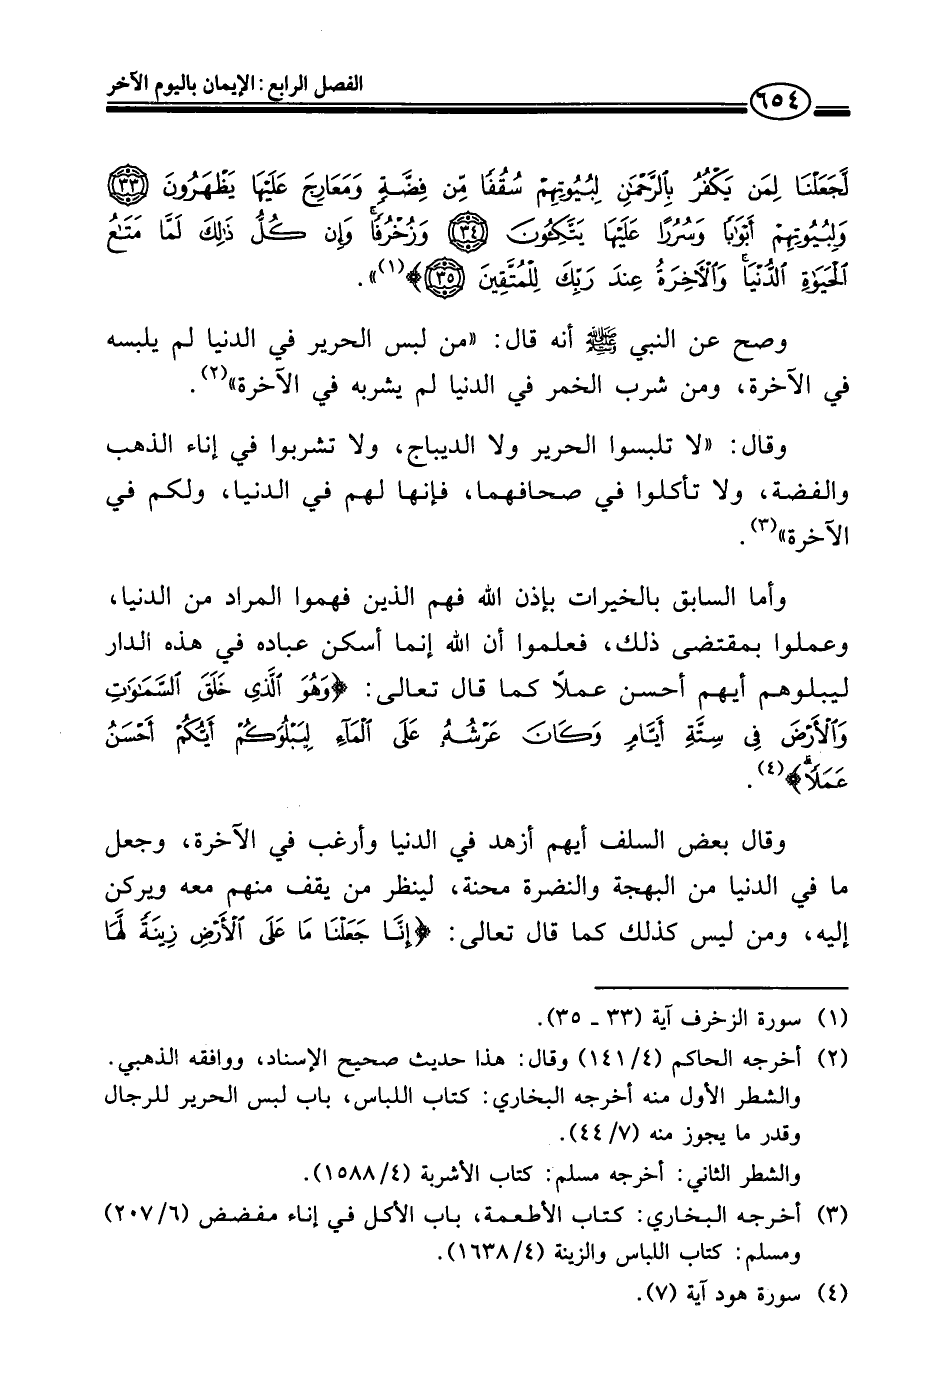 ٦٥٤ الفصل الرابع: الإيمان باليوم الآخر
لَّجَعَلْنَا لِمَن يَكْفُرُ بِالرَّحْمَٰنِ لِبُيُوتِهِمْ سُقُفًا مِّن فِضَّةٍ وَمَعَارِجَ عَلَيْهَا يَظْهَرُونَ ﴿٣٣﴾
وَلِبُيُوتِهِمْ أَبْوَٰبًا وَسُرُرًا عَلَيْهَا يَتَّكِـُٔونَ ﴿٣٤﴾ وَزُخْرُفًا ۚ وَإِن كُلُّ ذَٰلِكَ لَمَّا مَتَـٰعُ
ٱلْحَيَوٰةِ ٱلدُّنْيَا ۚ وَٱلْـَٔاخِرَةُ عِندَ رَبِّكَ لِلْمُتَّقِينَ ﴿٣٥﴾﴾(١)».
وصح عن النبي ﷺ أنه قال: «من لبس الحرير في الدنيا لم يلبسه
في الآخرة، ومن شرب الخمر في الدنيا لم يشربه في الآخرة»(٢).
وقال: «لا تلبسوا الحرير ولا الديباج، ولا تشربوا في إناء الذهب
والفضة، ولا تأكلوا في صحافهما، فإنها لهم في الدنيا، ولكم في
الآخرة»(٣).
وأما السابق بالخيرات بإذن الله فهم الذين فهموا المراد من الدنيا،
وعملوا بمقتضى ذلك، فعلموا أن الله إنما أسكن عباده في هذه الدار
ليبلوهم أيهم أحسن عملاً كما قال تعالى: ﴿وَهُوَ ٱلَّذِى خَلَقَ ٱلسَّمَـٰوَٰتِ
وَٱلْأَرْضَ فِى سِتَّةِ أَيَّامٍ وَكَانَ عَرْشُهُۥ عَلَى ٱلْمَآءِ لِيَبْلُوَكُمْ أَيُّكُمْ أَحْسَنُ
عَمَلًا ۗ﴾(٤).
وقال بعض السلف أيهم أزهد في الدنيا وأرغب في الآخرة، وجعل
ما في الدنيا من البهجة والنضرة محنة، لينظر من يقف منهم معه ويركن
إليه، ومن ليس كذلك كما قال تعالى: ﴿إِنَّا جَعَلْنَا مَا عَلَى ٱلْأَرْضِ زِينَةً لَّهَا
(١) سورة الزخرف آية (٣٣ - ٣٥).
(٢) أخرجه الحاكم (٤/ ١٤١) وقال: هذا حديث صحيح الإسناد، ووافقه الذهبي.
والشطر الأول منه أخرجه البخاري: كتاب اللباس، باب لبس الحرير للرجال
وقدر ما يجوز منه (٧/ ٤٤).
والشطر الثاني: أخرجه مسلم: كتاب الأشربة (٤/ ١٥٨٨).
(٣) أخرجه البخاري: كتاب الأطعمة، باب الأكل في إناء مفضض (٦/ ٢٠٧)
ومسلم: كتاب اللباس والزينة (٤/ ١٦٣٨).
(٤) سورة هود آية (٧).